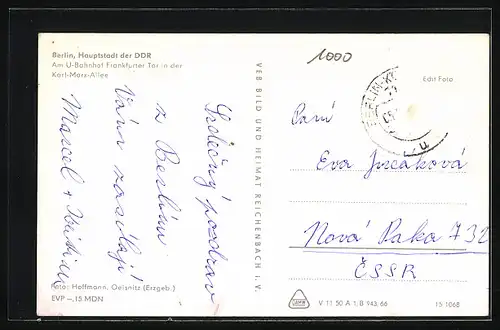 Berlin, Hauptstadt der DDR
Am U-Bahnhof Frankfurter Tor in der
Karl-Marx-Allee
Srdečný pozdrav
z Berlína
Vám zasílají
Marcel +
Foto: Hoffmann, Oelsnitz (Erzgeb.)
EVP –,15 MDN
VEB BILD UND HEIMAT REICHENBACH i. V.
1000
Echt Foto
BERLIN
Paní
Eva
Nová Paka 732
ČSSR
V 11 50 A 1, B 943/66
15 1068